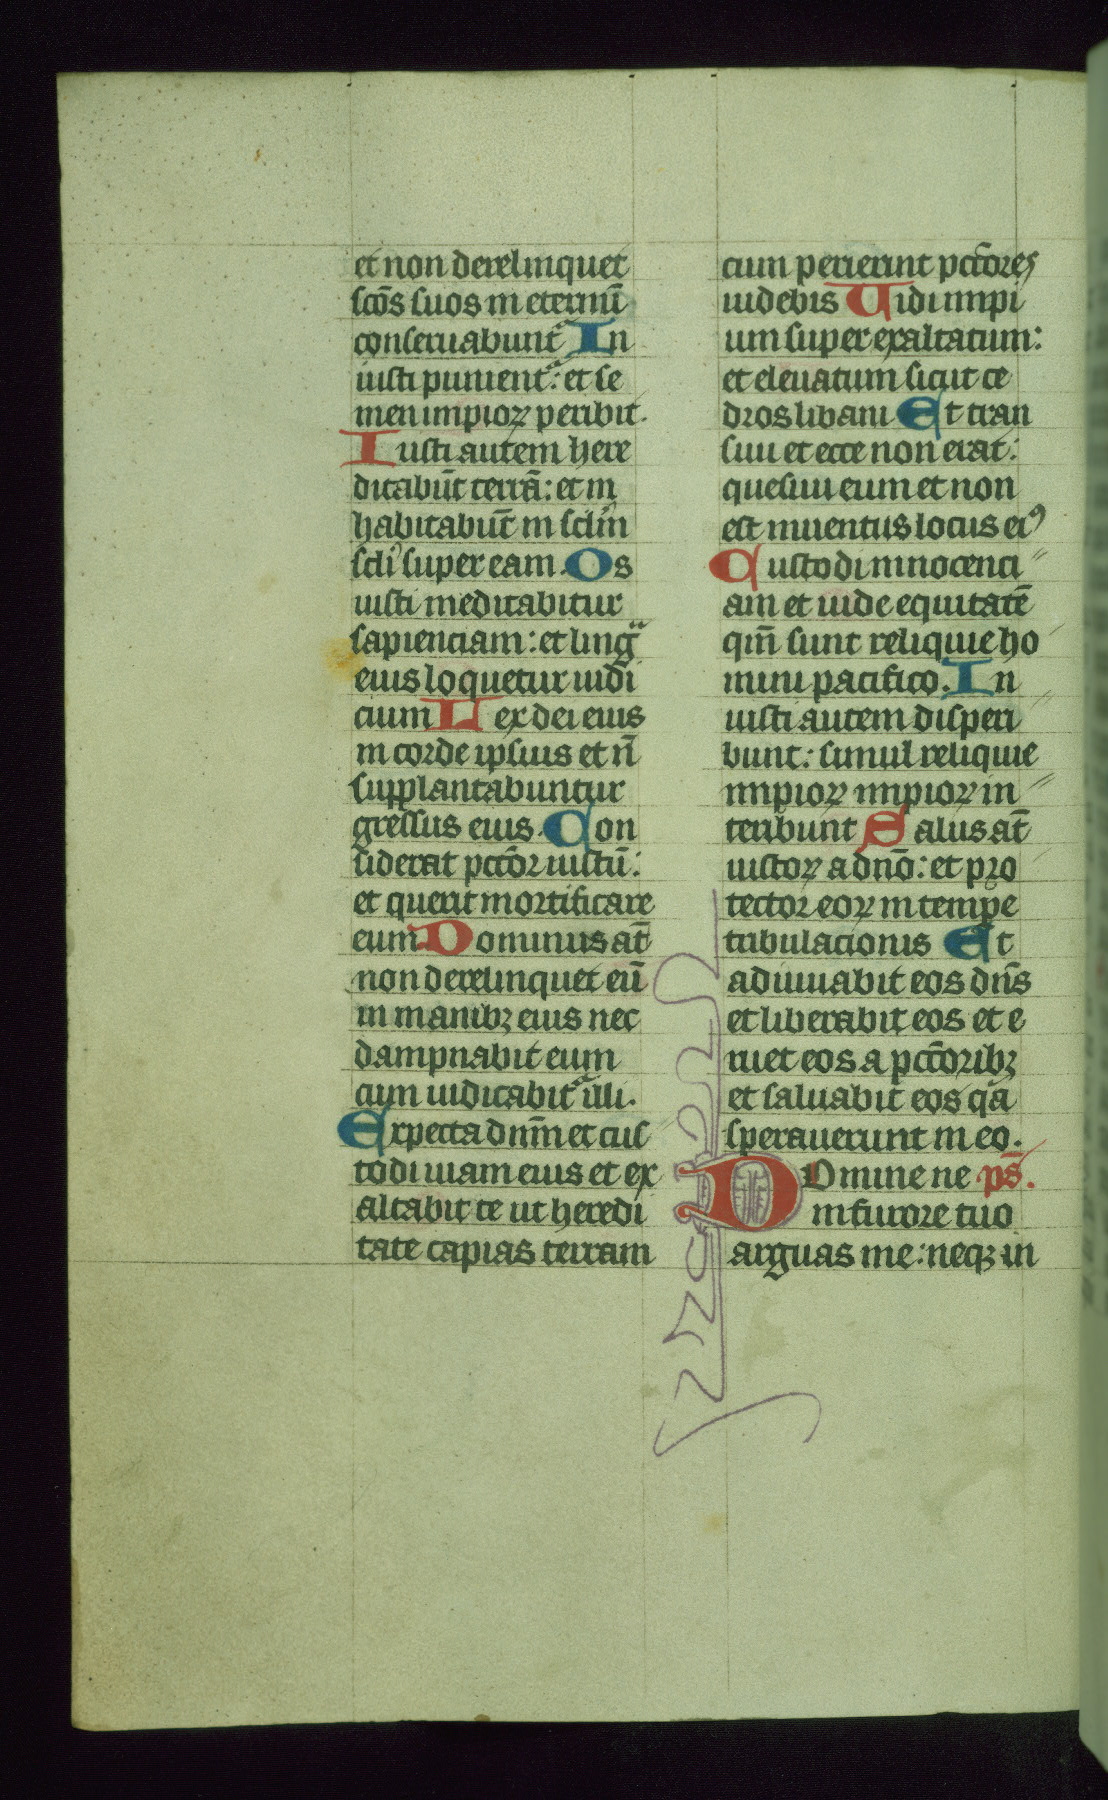 et non derelinquet
scōs suos in eternū
conseruabunt᷑ In
iusti punient᷑: et se
men impioꝝ peribit.
Iusti autem here
ditabūt terrā: et in
habitabūt in sclm̄
scli̇ super eam. Os
iusti meditabitur
sapienciam: et lingᷓ
eius loquetur iudi
cium Lex dei eius
in corde ipsius et n̄
supplantabuntur
gressus eius. Con
siderat pctōr iustū:
et querit mortificare
eum. Dominus aūt
non derelinquet eū
in manibꝫ eius nec
dampnabit eum
cum iudicabit᷑ illi.
Expecta dnm̄ et cus
todi uiam eius et ex
altabit te ut heredi
tate capias terram
cum perierint pctōres
uidebis Uidi impi
um super exaltatum:
et eleuatum sicut ce
dros libani Et tran
siui et ecce non erat:
quesiui eum et non
est inuentus locus eiꝰ
Custodi innocenci
am et uide equitatē
qm̄ sunt reliquie ho
mini pacifico. In
iusti autem disperi
bunt: simul reliquie
impioꝝ impioꝝ in
teribunt Salus aūt
iustoꝝ a dnō: et pro
tector eoꝝ in tempe
tribulacionis Et
adiuuabit eos dn̄s
et liberabit eos et e
ruet eos a pctōribꝫ
et saluabit eos qᷓa
sperauerunt in eo.
Domine ne ps̄.
in furore tuo
arguas me: neqꝫ in